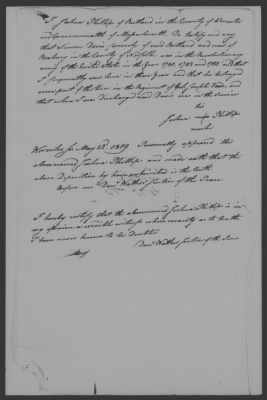 I Joshua Phillips of Rutland in the County of Worcester
and Commonwealth of Massachusetts Do certify and
say that Simeon Davis formerly of said Rutland and now of
Roxbury in the County of Norfolk was in the Revolutionary
army of the United States in the Year 1781, 1782 and 1783 and that
I frequently saw him in those years and that he belonged
some part of the time in the Regiment of Col. Joseph Vose and
that when I was Discharged said Davis was in the Service
his
Joshua + Phillips
mark
Worcester Ss May 22d 1819 Personally appeared the
above named Joshua Phillips and made oath that the
above Deposition by him subscribed is the truth
Before me Justice of the Peace
I hereby certify that the above named Joshua Phillips is in
my opinion a credible witness whose veracity as to truth
I have never known to be doubted
Justice of the Peace